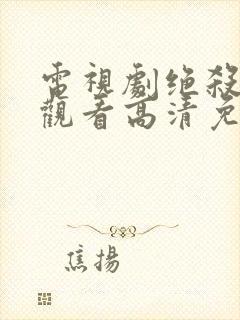 電視劇绝殺
觀看高清免
焦揚